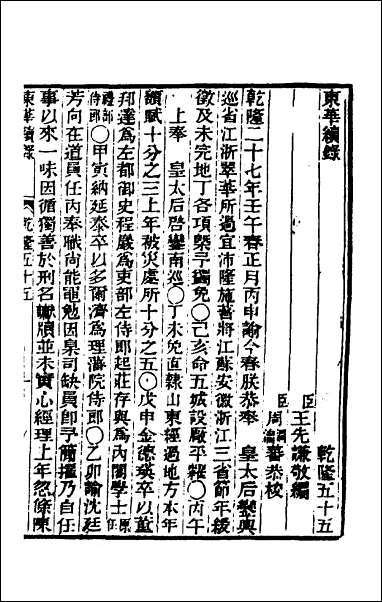 東華續錄
乾隆五十五
臣王先謙敬編
臣周潤蕃周瀹蕃恭校
乾隆二十七年壬午春正月丙申諭今春朕恭奉　皇太后鑾輿
巡省江浙翠華所過宜沛隆施著將江蘇安徽浙江三省節年緩
徵及未完地丁各項槩予蠲免○己亥命五城設厰平糶○丙午
上奉　皇太后啟鑾南巡○丁未免直隸山東經過地方本年
額賦十分之三上年被災處所十分之五○戊申金德瑛卒以董
邦達爲左都御史程巖爲吏部左侍郎起莊存與爲內閣學士原
禮部侍郎○甲寅納延泰卒以多爾濟爲理藩院侍郎○乙卯諭沈廷
芳向在道員任內奉職尚能黽勉因臬司缺員卽予簡擢乃自任
事以來一味因循獨善於刑名讞牘並未實心經理上年忽條陳
東華續錄　乾隆五十五